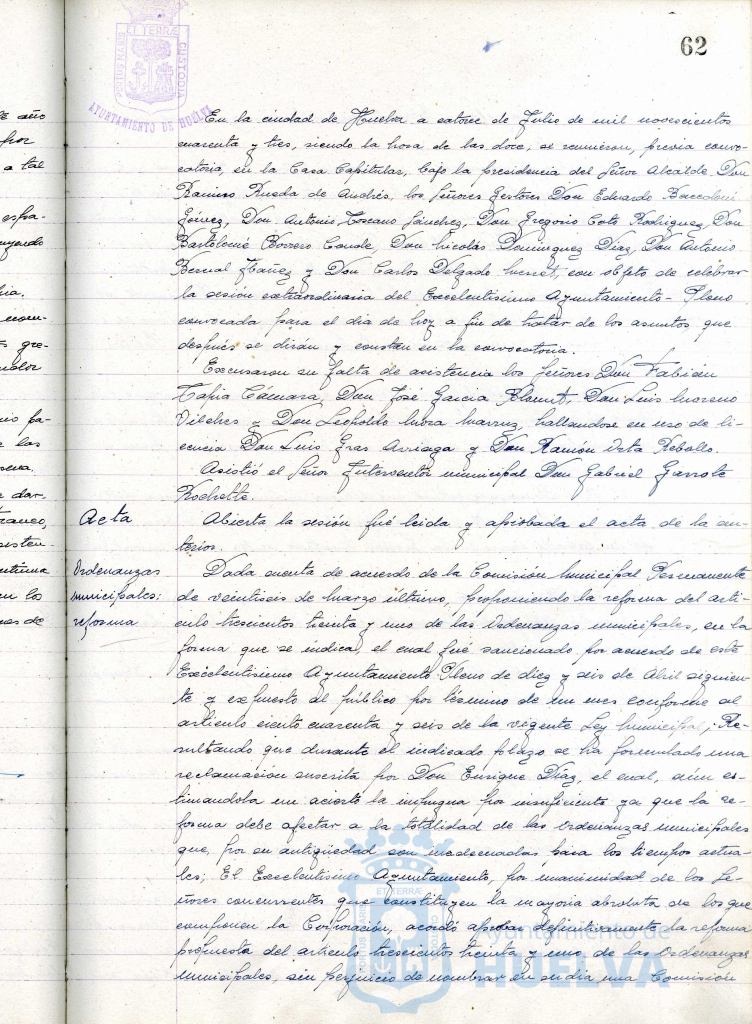 62
PORTUS MARIS ET TERRÆ CUSTODIA
AYUNTAMIENTO DE HUELVA
En la ciudad de Huelva a catorce de Julio de mil novecientos
cuarenta y tres, siendo la hora de las doce, se reunieron, previa convo-
catoria, en la Casa Capitular, bajo la presidencia del Señor Alcalde Don
Ramiro Rueda de Andrés, los Señores Gestores Don Eduardo
Gómez, Don Antonio Toscano Sánchez, Don Gregorio Coto Rodríguez, Don
Bartolomé Borrero Conde, Don Nicolás Domínguez Díaz, Don Antonio
Bernal Ibañez y Don Carlos Delgado con objeto de celebrar
la sesión extraordinaria del Excelentísimo Ayuntamiento-Pleno
convocada para el dia de hoy a fin de tratar de los asuntos que
después se dirán y constan en la convocatoria.
Excusaron su falta de asistencia los Señores Don Fabián
Tapia Cámara, Don José García Don Luis Moreno
Vilches y Don Leopoldo Mora hallandose en uso de li-
cencia Don Luis Gras Arriaga y Don Ramón Orta Rebollo.
Asistió el Señor Interventor municipal Don Gabriel Garrote
Acta
Abierta la sesión fué leida y aprobada el acta de la an-
terior.
Ordenanzas
municipales:
reforma
Dada cuenta de acuerdo de la Comisión Municipal Permanente
de veintiseis de Marzo último, proponiendo la reforma del artí-
culo trescientos treinta y uno de las Ordenanzas municipales, en la
forma que se indica, el cual fué sancionado por acuerdo de este
Excelentísimo Ayuntamiento Pleno de diez y seis de Abril siguien-
te y expuesto al público por término de un mes conforme al
artículo ciento cuarenta y seis de la vigente Ley Municipal; Re-
sultando que durante el indicado plazo se ha formulado una
reclamación suscrita por Don Enrique Díaz, el cual, aun es-
timandola un acierto la impugna por insuficiente ya que la re-
forma debe afectar a la totalidad de las Ordenanzas municipales
que, por su antigüedad son inadecuadas para los tiempos actua-
les; El Excelentísimo Ayuntamiento, por unanimidad de los Se-
ñores concurrentes que constituyen la mayoría absoluta de los que
componen la Corporación, acordó aprobar definitivamente la reforma
propuesta del artículo trescientos treinta y uno de las Ordenanzas
municipales, sin perjuicio de nombrar en su dia una Comisión
Ayuntamiento de
HUELVA